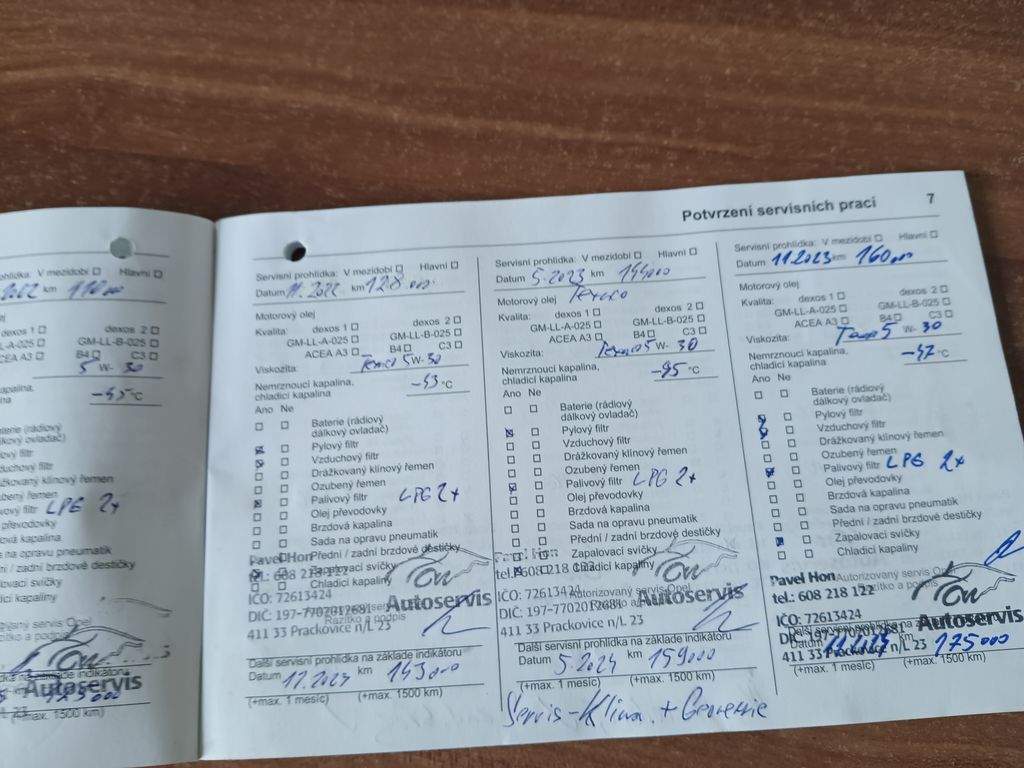 Potvrzení servisních prací 7
Hlavní
km 110 000
dexos 1 dexos 2
GM-LL-B-025
ACEA A3 B4 C3
5 W- 30
-45 °C
LPG 2x
Sada na opravu pneumatik
Přední / zadní brzdové destičky
Zapalovací svíčky
Chladicí kapaliny
Autoservis
(+max. 1500 km)
Servisní prohlídka: V mezidobí Hlavní
Datum 11.2022 km 128 000
Motorový olej
Kvalita: dexos 1 dexos 2
GM-LL-A-025 GM-LL-B-025
ACEA A3 B4 C3
Viskozita: 5 W- 30
Nemrznoucí kapalina,
chladicí kapalina -43 °C
Ano Ne
Baterie (rádiový
dálkový ovladač)
Pylový filtr
Vzduchový filtr
Drážkovaný klínový řemen
Ozubený řemen
Palivový filtr LPG 2x
Olej převodovky
Brzdová kapalina
Sada na opravu pneumatik
Přední / zadní brzdové destičky
Zapalovací svíčky
Chladicí kapaliny
Pavel Hon
tel.: 608 218 122
IČO: 72613424
Autoservis
Razítko a podpis
411 33 Prackovice n/L 23
Další servisní prohlídka na základě indikátoru
Datum km 143 000
(+max. 1 měsíc) (+max. 1500 km)
Servisní prohlídka: V mezidobí Hlavní
Datum 5.2023 km 144000
Motorový olej Texaco
Kvalita: dexos 1 dexos 2
GM-LL-A-025 GM-LL-B-025
ACEA A3 B4 C3
Viskozita: Texaco 5 W- 30
Nemrznoucí kapalina,
chladicí kapalina °C
Ano Ne
Baterie (rádiový
dálkový ovladač)
Pylový filtr
Vzduchový filtr
Drážkovaný klínový řemen
Ozubený řemen
Palivový filtr LPG 2x
Olej převodovky
Brzdová kapalina
Sada na opravu pneumatik
Přední / zadní brzdové destičky
Zapalovací svíčky
Chladicí kapaliny
Pavel Hon
tel.: 608 218 122
IČO: 72613424
Autoservis
411 33 Prackovice n/L 23
Další servisní prohlídka na základě indikátoru
Datum 5.2024 km 159000
(+max. 1 měsíc) (+max. 1500 km)
Servis-Klima + Geometrie
Servisní prohlídka: V mezidobí Hlavní
Datum 11.2023 km 160 000
Motorový olej
Kvalita: dexos 1 dexos 2
GM-LL-A-025 GM-LL-B-025
ACEA A3 B4 C3
Viskozita: 5 W- 30
Nemrznoucí kapalina,
chladicí kapalina °C
Ano Ne
Baterie (rádiový
dálkový ovladač)
Pylový filtr
Vzduchový filtr
Drážkovaný klínový řemen
Ozubený řemen
Palivový filtr LPG 2x
Olej převodovky
Brzdová kapalina
Sada na opravu pneumatik
Přední / zadní brzdové destičky
Zapalovací svíčky
Chladicí kapaliny
Pavel Hon Autorizovaný servis Opel
tel.: 608 218 122 Razítko a podpis
IČO: 72613424
Autoservis
411 33 Prackovice n/L 23
km 175 000
(+max. 1 měsíc) (+max. 1500 km)